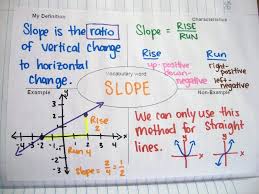 My Definition
Characteristics
Slope is the ratio
of vertical change
to horizontal
change.
Slope = RISE
RUN
Rise
up-positive
down-
negative
Run
right-
positive
left-
negative
Vocabulary word
SLOPE
Example
Non-Example
Rise
2
Run 4
slope = 2/4 = 1/2
We can only use this
method for straight
lines.